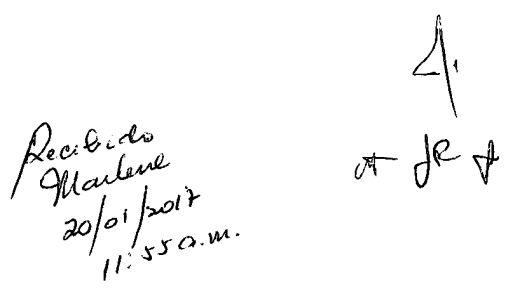 Recibido
Marlene
20/01/2017
11:55 a.m.